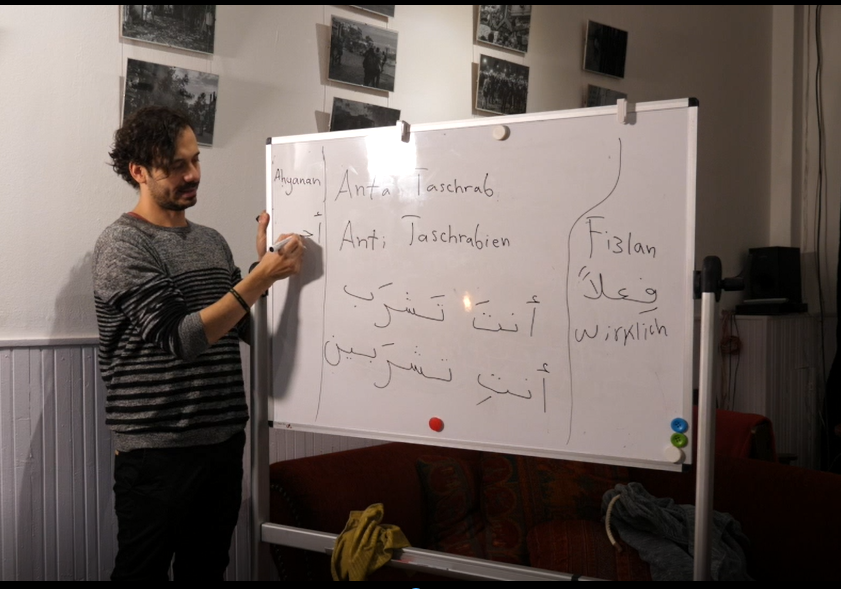 Ahyanan
أح
Anta Taschrab
Anti Taschrabien
أنتَ تَشرَب
أنتِ تشرَبين
Fi3lan
فِعلاً
wirklich